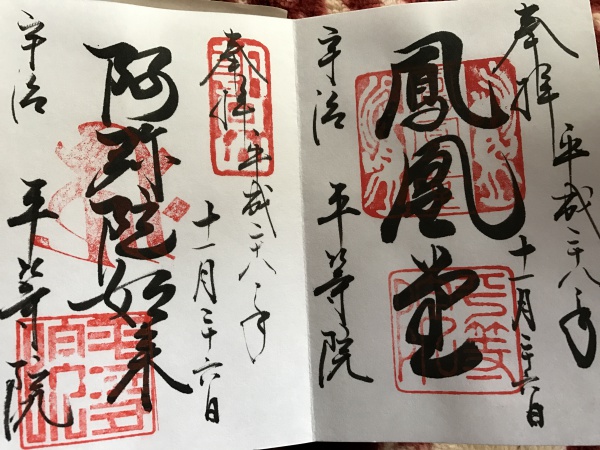 奉拝 平成二十八年
十一月二十六日
鳳凰堂
宇治 平等院
奉拝 平成二十八年
十一月二十六日
阿弥陀如来
宇治 平等院